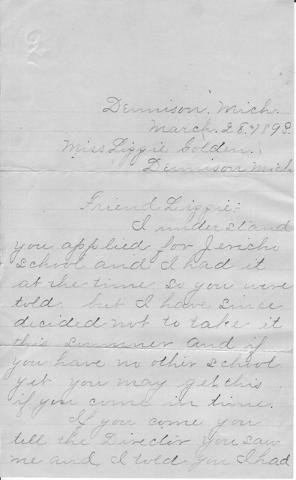 Dennison. Mich.
March. 28. 1898.
Miss Lizzie Golden.
Dennison Mich.
Friend Lizzie:
I understand
you applied for Jericho
school and I had it
at the time so you were
told but I have since
decided not to take it
this summer and if
you have no other school
yet you may get this
if you come in time.
If you come you
tell the Director you saw
me and I told you I had